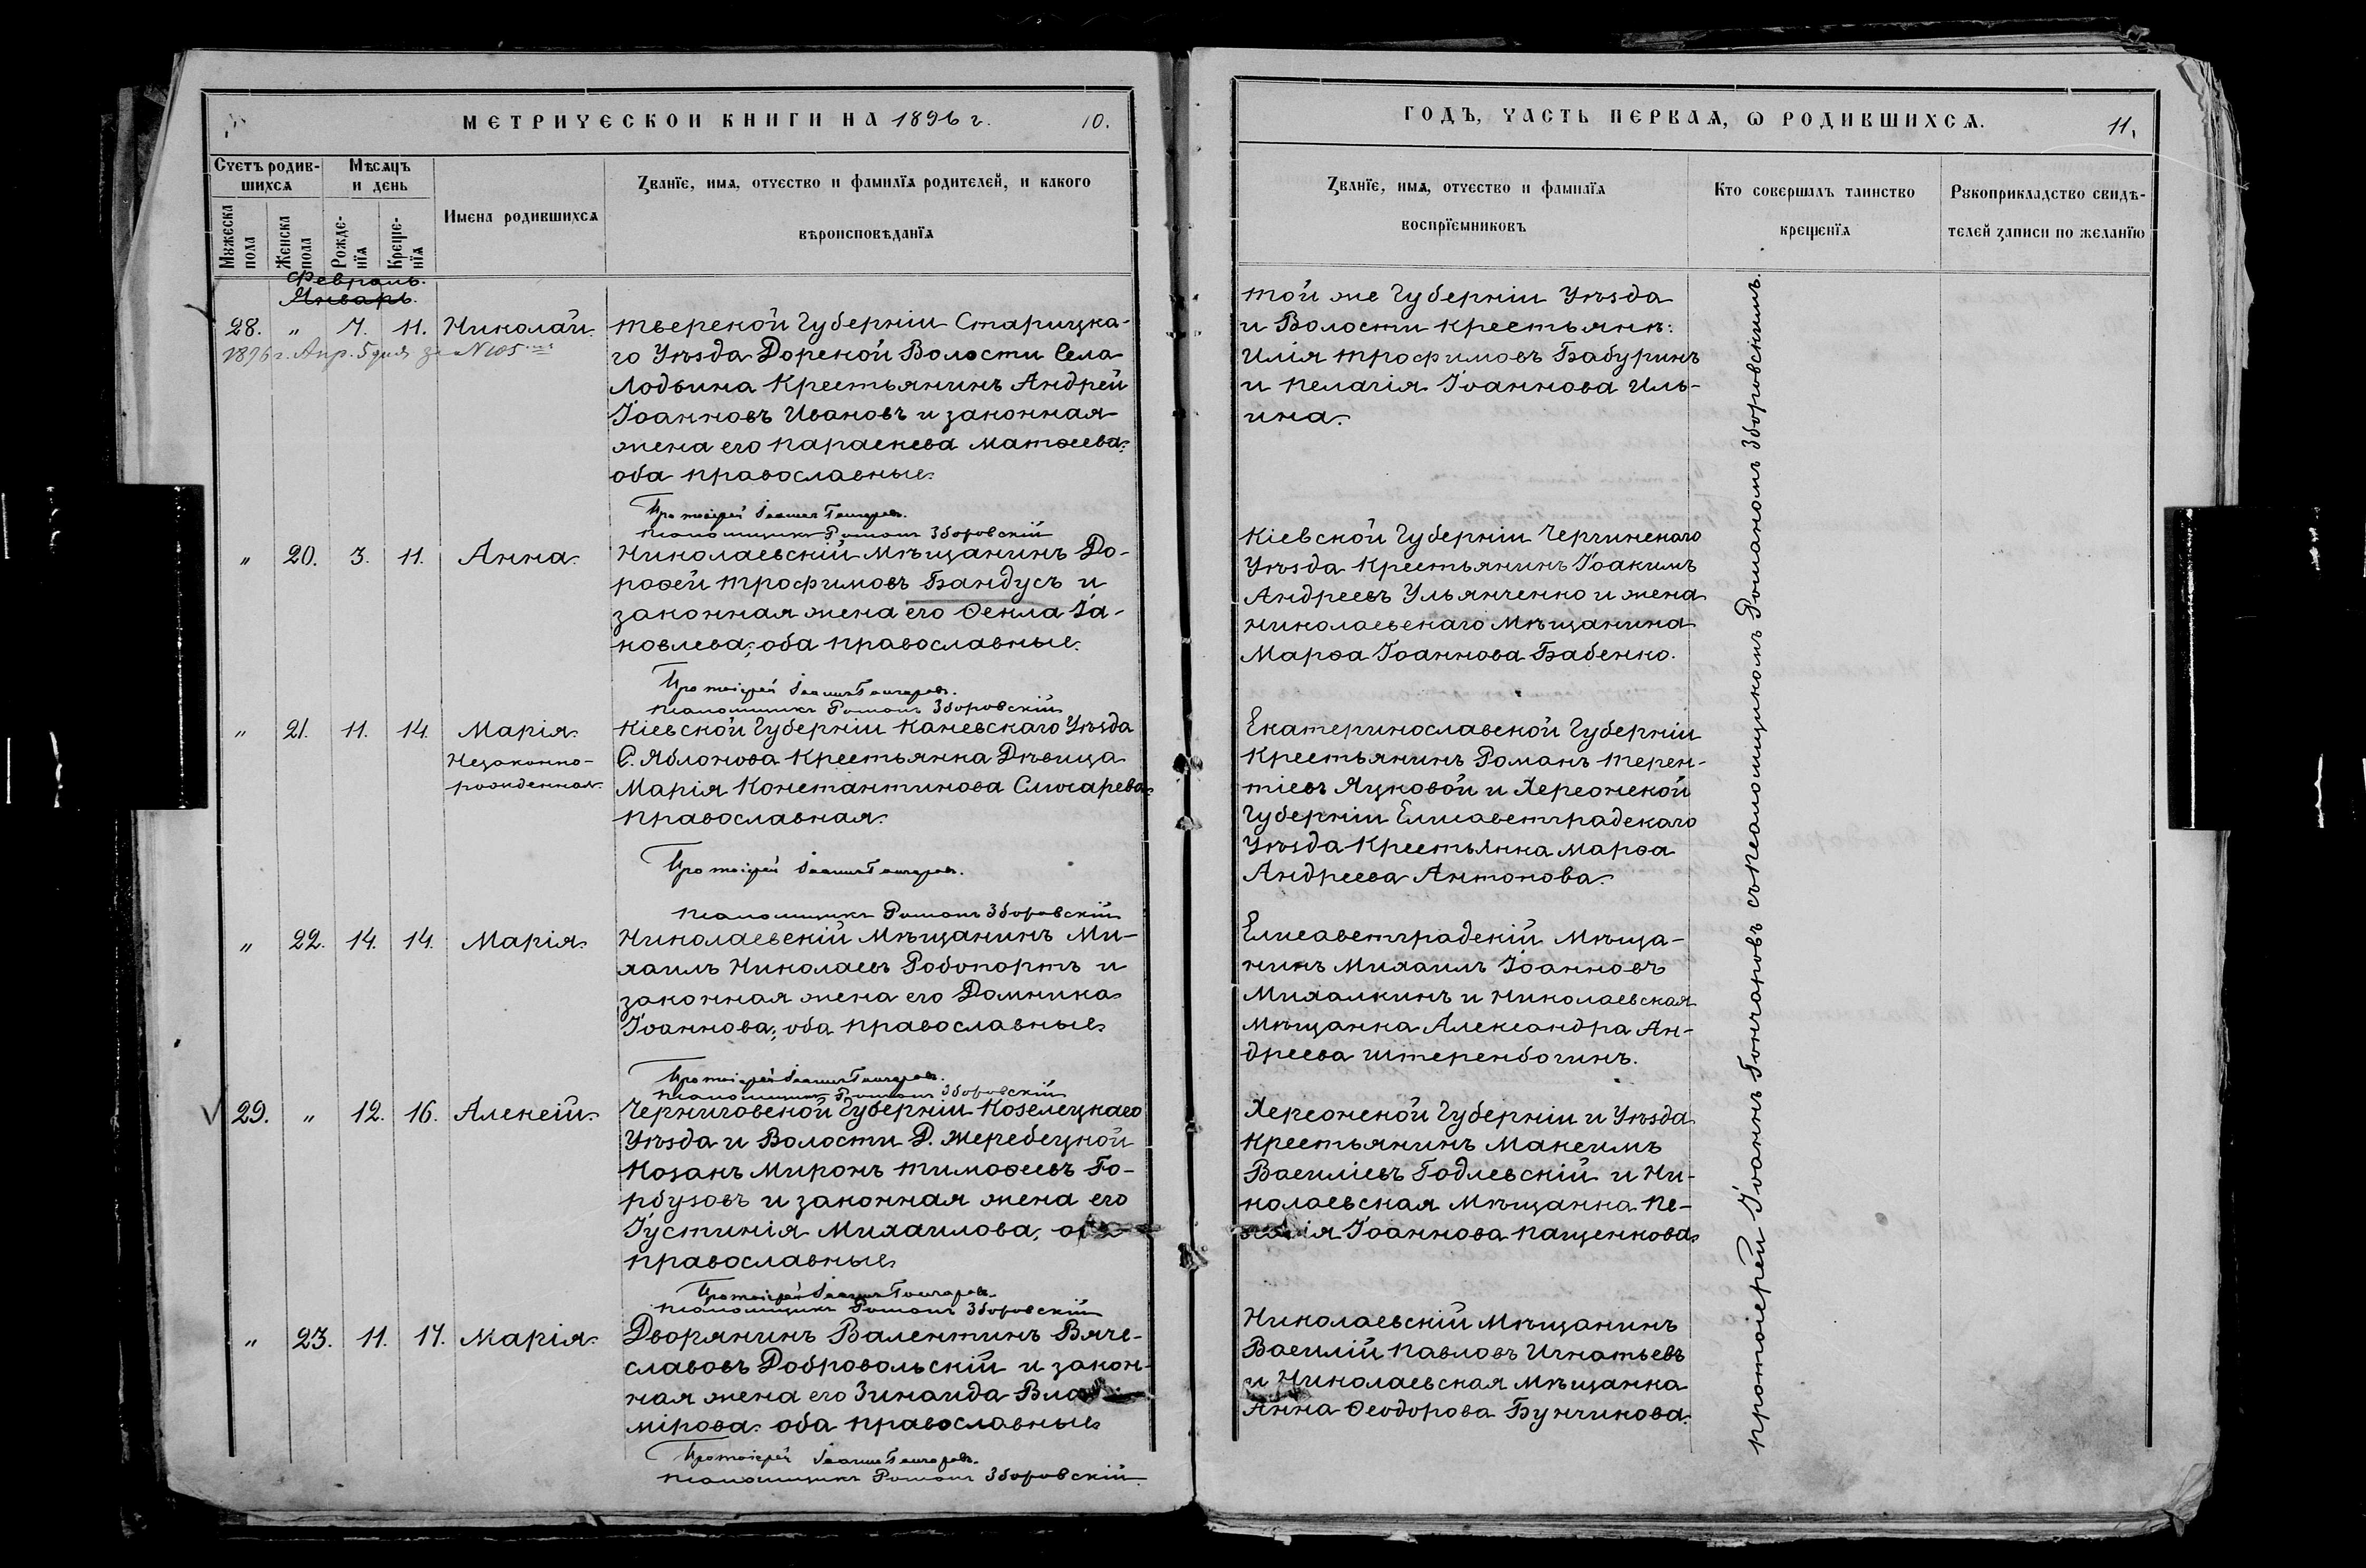 МЕТРИЧЕСКОИ КНИГИ НА 1896 г. 10.
Счетъ родив-
шихсѧ
Мѣсѧцъ
и день
Имена родившихсѧ
Званїе, имѧ, отчество и фамилїѧ родителей, и какого
вѣроисповѣданїѧ
Мꙋжеска
пола
Женска
пола
Рожде-
нїѧ
Креще-
нїѧ
Февраль.
Январь.
28. „ 7. 11. Николай.
1896 г. Апр. 5 дня за №105
Тверской Губерніи Старицка-
го Уѣзда Дорской Волости Села
Лодьина Крестьянинъ Андрей
Іоанновъ Ивановъ и законная
жена его Параскева Матѳеева;
оба православные.
Протоіерей Іоаннъ Гончаровъ.
Псаломщикъ Романъ Зборовскій
„ 20. 3. 11. Анна.
Николаевскій Мѣщанинъ До-
роѳей Трофимовъ Бандусъ и
законная жена его Ѳекла Іа-
ковлева; оба православные.
Протоіерей Іоаннъ Гончаровъ.
Псаломщикъ Романъ Зборовскій
„ 21. 11. 14. Марія.
Незаконно-
рожденная.
Кіевской Губерніи Каневскаго Уѣзда
С. Яблонова Крестьянка Дѣвица
Марія Константинова Слюсарева
православная.
Протоіерей Іоаннъ Гончаровъ.
Псаломщикъ Романъ Зборовскій
„ 22. 14. 14. Марія.
Николаевскій Мѣщанинъ Ми-
хаилъ Николаевъ Робопортъ и
законная жена его Домника
Іоаннова; оба православные.
Протоіерей Іоаннъ Гончаровъ.
Псаломщикъ Романъ Зборовскій
29. „ 12. 16. Алексій.
Черниговской Губерніи Козелецкаго
Уѣзда и Волости Д. Жеребецкой
Козакъ Миронъ Тимоѳеевъ Го-
рбузовъ и законная жена его
Іустинія Михаилова,
православные.
Протоіерей Іоаннъ Гончаровъ.
Псаломщикъ Романъ Зборовскій
„ 23. 11. 17. Марія.
Дворянинъ Валентинъ Вяче-
славовъ Добровольскій и закон-
ная жена его Зинаида Влади-
мірова: оба православные.
Протоіерей Іоаннъ Гончаровъ.
Псаломщикъ Романъ Зборовскій.
ГОДЪ, ЧАСТЬ ПЕРВАѦ, Ѡ РОДИВШИХСѦ. 11.
Званїе, имѧ, отчество и фамилїѧ
воспрїемниковъ
Кто совершалъ таинство
крещенїѧ
Рꙋкоприкладство свидѣ-
телей записи по желанїю
той же Губерніи Уѣзда
и Волости крестьяне:
Илія Трофимовъ Бабуринъ
и Пелагія Іоаннова Иль-
ина.
Кіевской Губерніи Чергинскаго
Уѣзда Крестьянинъ Іоакимъ
Андреевъ Ульянченко и жена
Николаевскаго Мѣщанина
Марѳа Іоаннова Бабенко.
Екатеринославской Губерніи
Крестьянинъ Романъ Терен-
тіевъ Яцковой и Херсонской
Губерніи Елисаветградскаго
Уѣзда Крестьянка Марѳа
Андреева Антонова.
Елисаветградскій Мѣща-
нинъ Михаилъ Іоанновъ
Михалкинъ и Николаевская
Мѣщанка Александра Ан-
дреева Штеренбогинъ.
Херсонской Губерніи и Уѣзда
Крестьянинъ Максимъ
Василіевъ Годлевскій и Ни-
колаевская Мѣщанка Пе-
Іоаннова Пащенкова.
Николаевскій Мѣщанинъ
Василій Павловъ Игнатьевъ
и Николаевская Мѣщанка
Анна Ѳеодорова Бунчикова.
Протоіерей Іоаннъ Гончаровъ съ псаломщикомъ Романомъ Зборовскимъ.